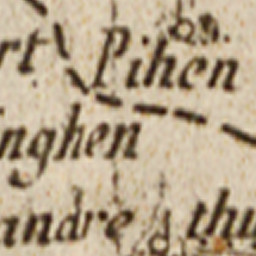 rt Pihen
nghen
andre thu